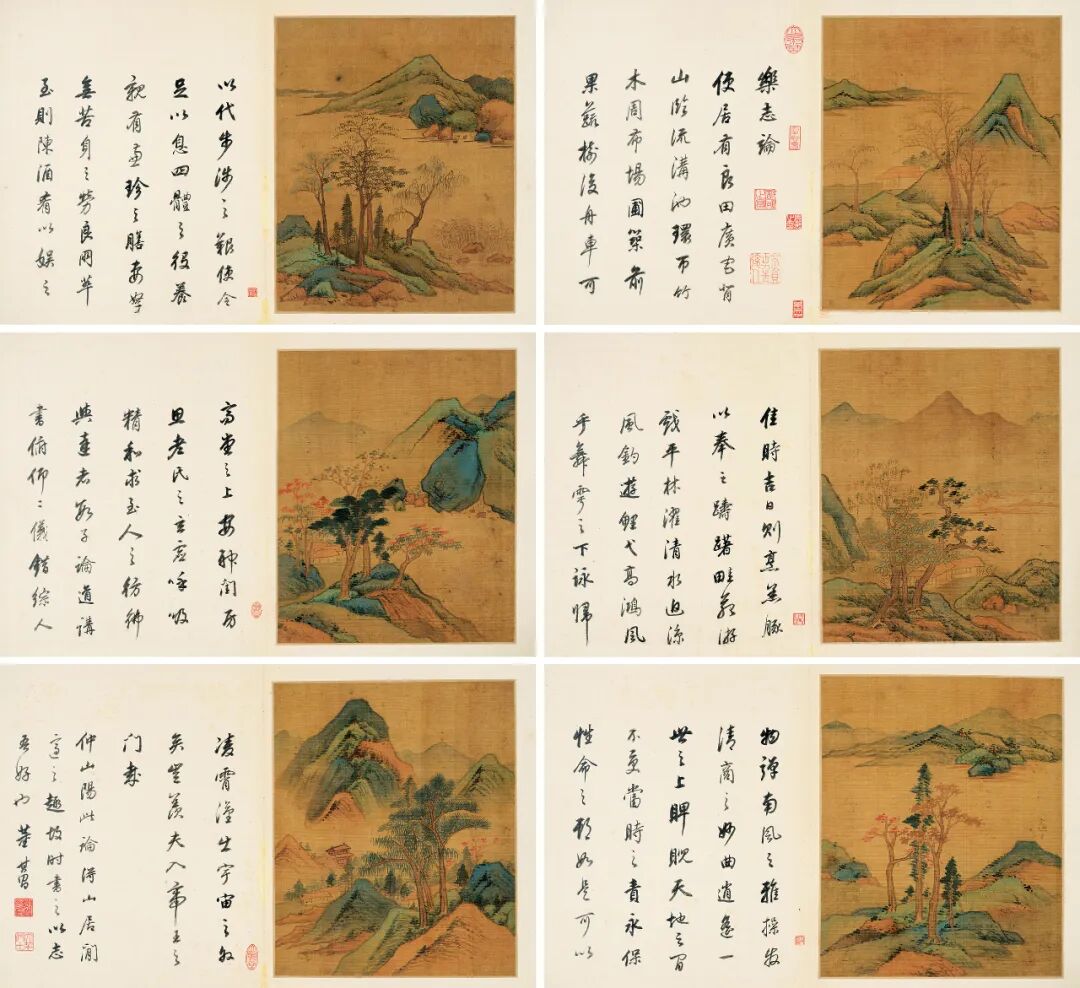 樂志論
使居有良田廣宅背
山臨流溝池環帀竹
木周布場圃築前
果蔬樹後舟車可
以代步涉之艱使令
足以息四體之役養
親有兼珍之膳妻孥
無苦身之勞良朋萃
至則陳酒肴以娛之
佳時吉日則烹羔豚
以奉之躊躇畦苑游
戲平林濯清水追涼
風釣遊鯉弋高鴻風
乎舞雩之下詠歸
高堂之上安神閨房
思老氏之玄虛呼吸
精和求至人之彷彿
與達者數子論道講
書俯仰二儀錯綜人
物彈南風之雅操發
清商之妙曲逍遙一
世之上睥睨天地之間
不受當時之責永保
性命之期如是可以
凌霄漢出宇宙之外
矣豈羨夫入帝王之
門哉
仲山陽此論得山居閒
適之趣故時書之以志
吾好也 董其昌